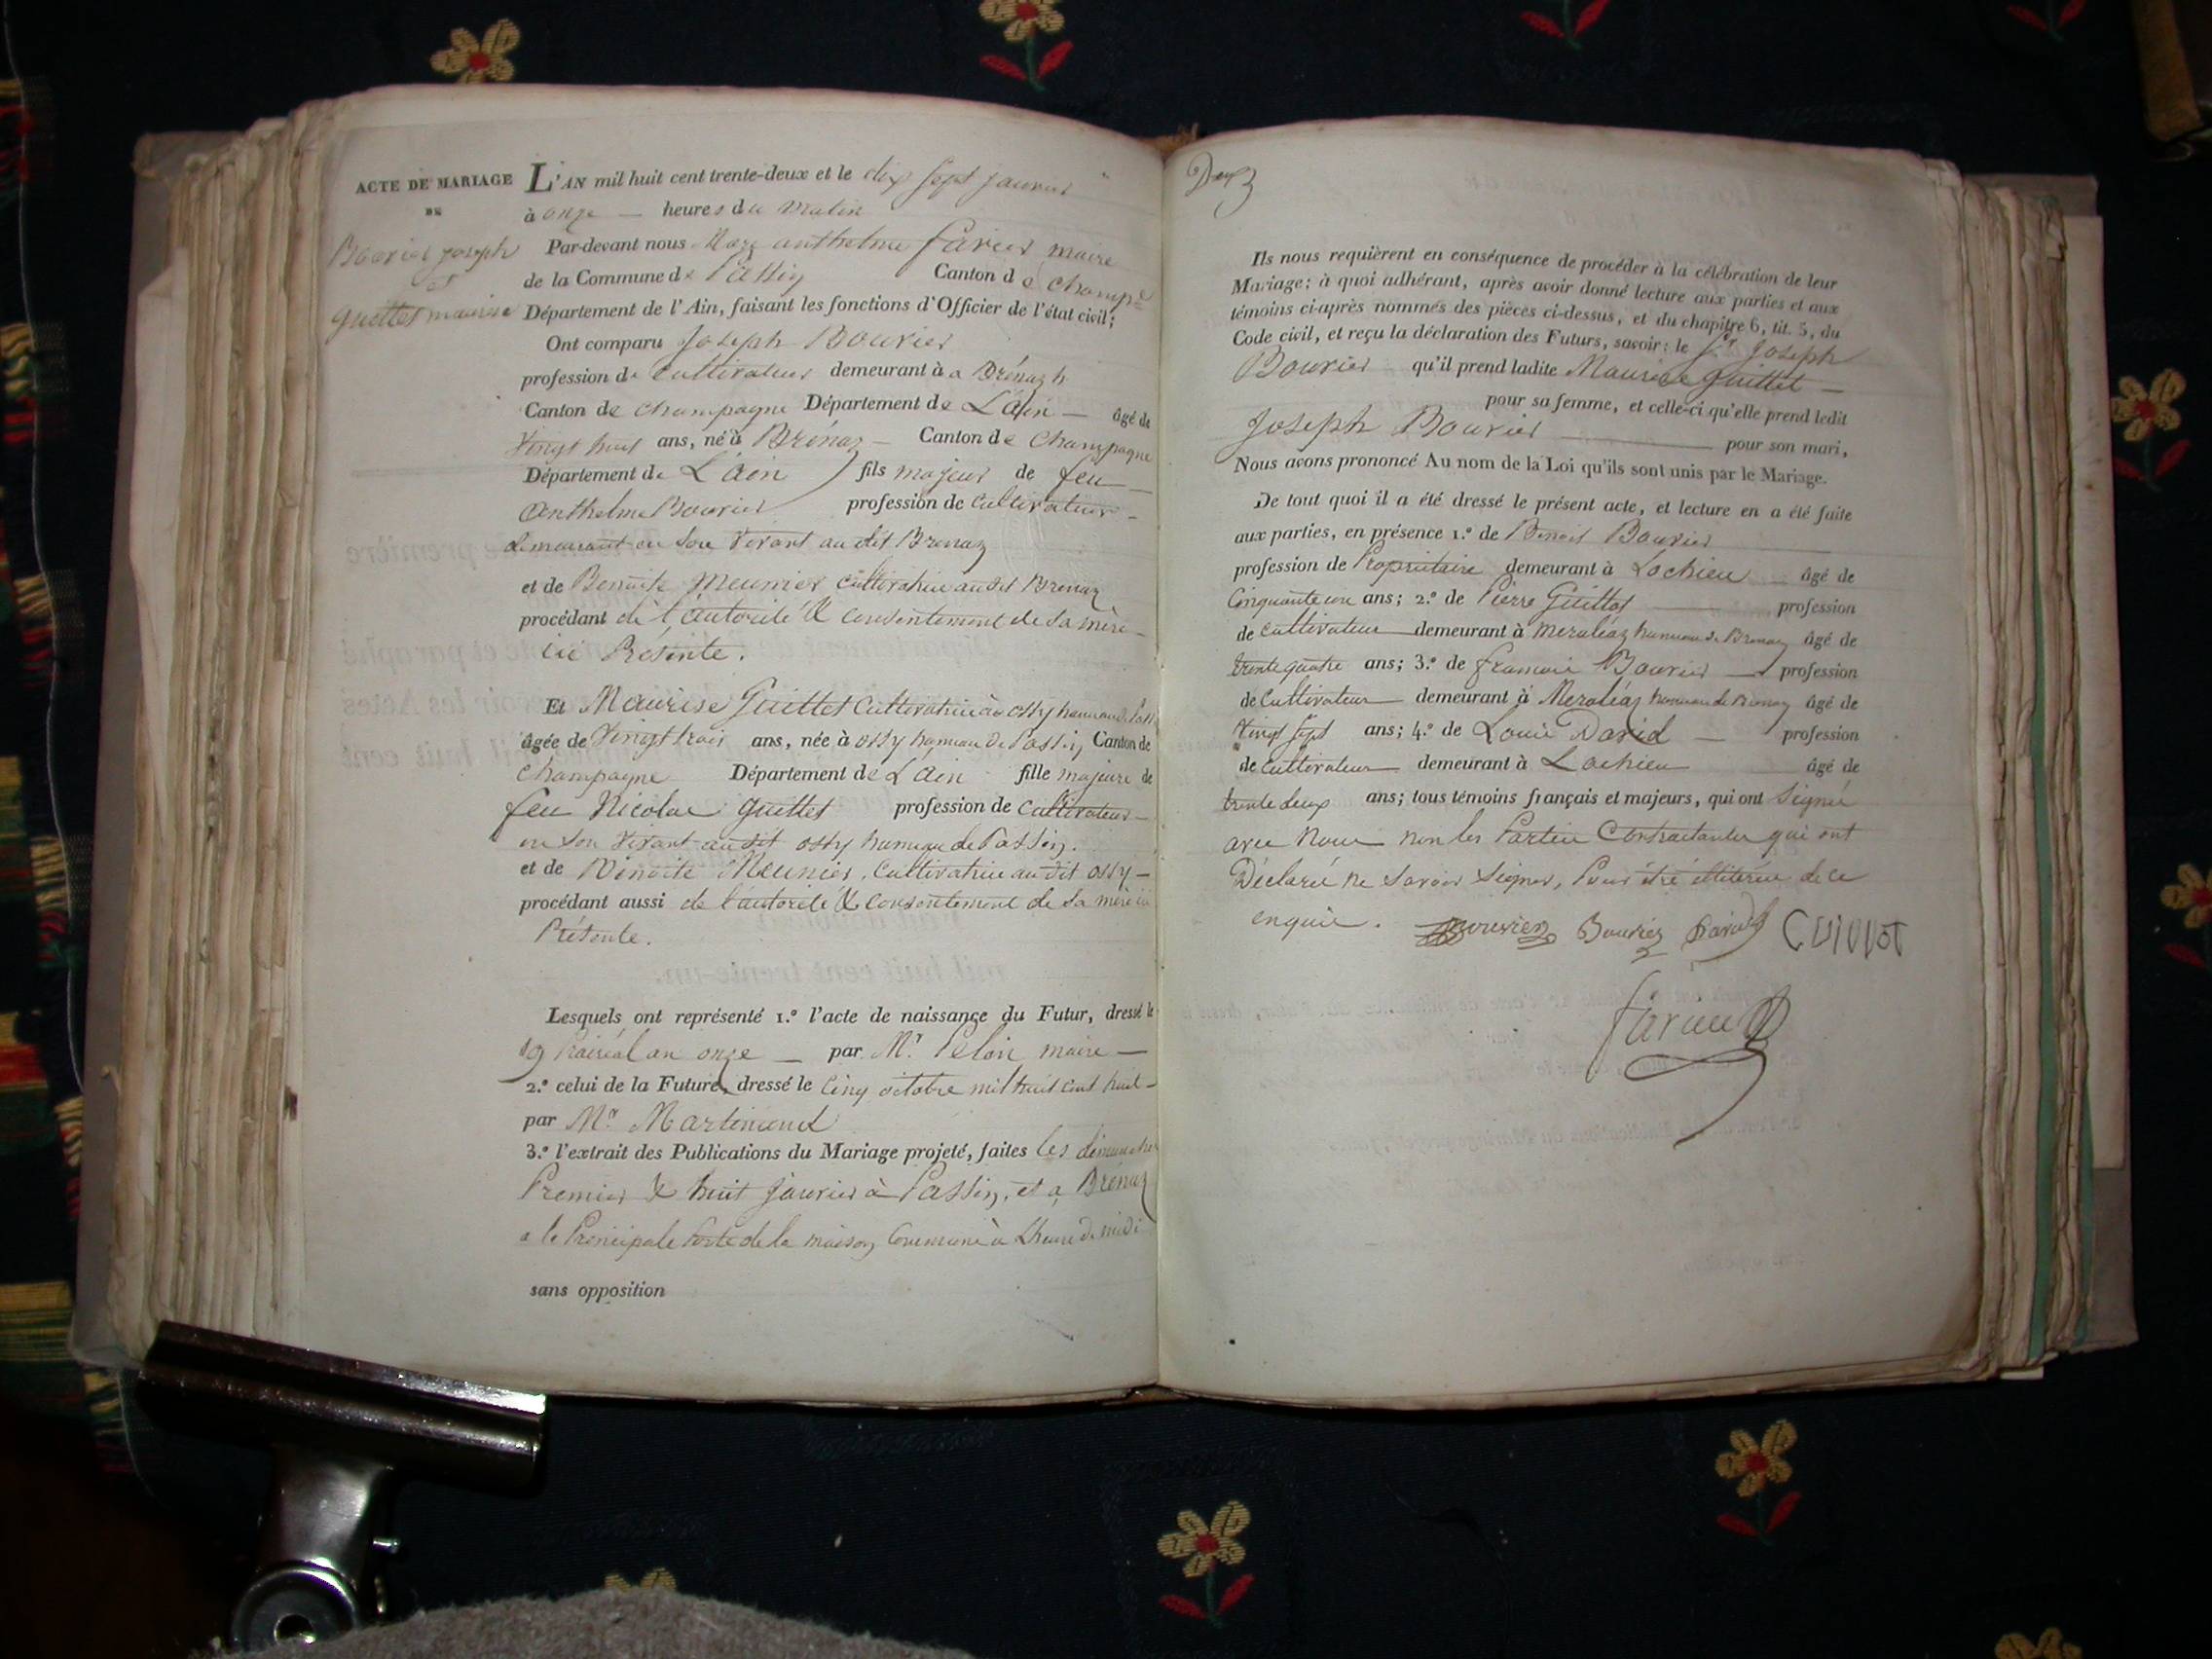 ACTE DE MARIAGE
DE
Bouvier joseph
et
guillet maurise
L'AN mil huit cent trente-deux et le dix sept janvier
à onze heures du matin
Par-devant nous anthelme favier maire
de la Commune de Passin Canton de Champe
Département de l'Ain, faisant les fonctions d'Officier de l'état civil;
Ont comparu Joseph Bouvier
profession de Cultivateur demeurant à a Brénaz
Canton de Champagne Département de L'ain âgé de
Vingt huit ans, né à Brénaz Canton de Champagne
Département de L'ain fils majeur de feu
Anthelme Bouvier profession de Cultivateur
demeurant en son Vivant au dit Brenaz
et de Benoite Meunier Cultivatrice audit Brenaz
procédant de l'autorité & Consentement de sa mère
ici Présente.
Et Maurise Guillet Cultivatrice à ossy hameau de Passin
âgée de Vingt trois ans, née à ossy hameau de Passin Canton de
Champagne Département de L'ain fille majeure de
feu Nicolas guillet profession de Cultivateur
en son Vivant audit ossy hameau de Passin.
et de Benoite Meunier, Cultivatrice au dit ossy
procédant aussi de l'autorité & Consentement de sa mère ici
Présente.
Lesquels ont représenté 1.º l'acte de naissance du Futur, dressé le
19 Prairéal an onze par Mr. Peloin maire
2.º celui de la Future, dressé le Cinq octobre mil huit cent huit
par Mr. Martinand
3.º l'extrait des Publications du Mariage projeté, faites les dimanches
Premier & huit janvier à Passin, et à Brénaz
a la Principale Porte de la maison Commune à L'heure de midi
sans opposition
Deux
Ils nous requièrent en conséquence de procéder à la célébration de leur
Mariage; à quoi adhérant, après avoir donné lecture aux parties et aux
témoins ci-après nommés des pièces ci-dessus, et du chapitre 6, tit. 5, du
Code civil, et reçu la déclaration des Futurs, savoir: le Sr Joseph
Bouvier qu'il prend ladite Maurise guillet
pour sa femme, et celle-ci qu'elle prend ledit
Joseph Bouvier pour son mari,
Nous avons prononcé Au nom de la Loi qu'ils sont unis par le Mariage.
De tout quoi il a été dressé le présent acte, et lecture en a été faite
aux parties, en présence 1.º de Benoit Bouvier
profession de Propriétaire demeurant à Lochieu âgé de
Cinquante un ans; 2.º de Pierre Guillot profession
de Cultivateur demeurant à Méraléaz hameau de Brenaz âgé de
trente quatre ans; 3.º de francois Bouvier profession
de Cultivateur demeurant à Méraléaz hameau de Brenaz âgé de
Vingt sept ans; 4.º de Louis David profession
de Cultivateur demeurant à Lochieu âgé de
trente deux ans; tous témoins français et majeurs, qui ont Signé
avec Nous non les Parties Contractantes qui ont
Déclaré ne savoir signer, Pour être illitérée de ce
enquis. Bouvier Bouvier David GUILLOT
favier